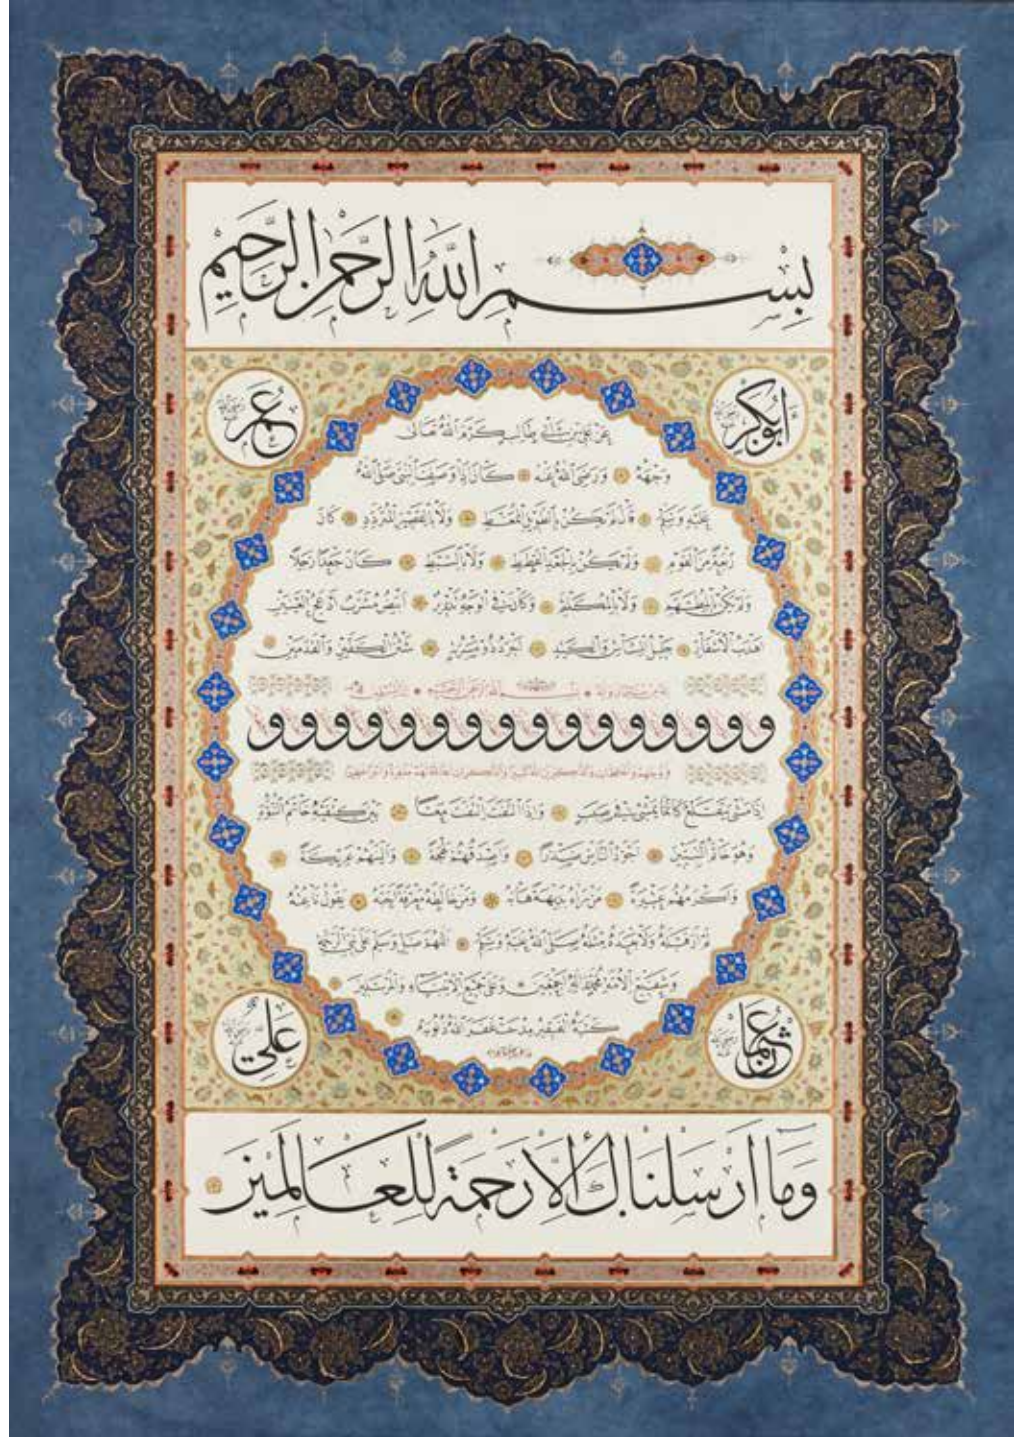 بسم الله الرحمن الرحيم
أبو بكر
عمر
عن علي بن أبي طالب كرم الله تعالى
وجهه ورضي الله عنه كان إذا وصف النبي صلى الله
عليه وسلم قال لم يكن بالطويل الممغط ولا بالقصير المتردد كان
ربعة من القوم ولم يكن بالجعد القطط ولا بالسبط كان جعدا رجلا
ولم يكن بالمطهم ولا بالمكلثم وكان في الوجه تدوير أبيض مشرب أدعج العينين
أهدب الأشفار جليل المشاش والكتد أجرد ذو مسربة شثن الكفين والقدمين
بسم الله الرحمن الرحيم
و و و و و و و و و و و و و و و و
فروجهم والحافظات والذاكرين الله كثيرا والذاكرات أعد الله لهم مغفرة وأجرا عظيما
إذا مشى يتقلع كأنما يمشي في صبب وإذا التفت التفت معا بين كتفيه خاتم النبوة
وهو خاتم النبيين أجود الناس صدرا وأصدقهم لهجة وألينهم عريكة
وأكرمهم عشيرة من رآه بديهة هابه ومن خالطه معرفة أحبه يقول ناعته
لم أر قبله ولا بعده مثله صلى الله عليه وسلم اللهم صل وسلم على نبي الرحمة
وشفيع الأمة محمد وآله أجمعين وعلى جميع الأنبياء والمرسلين
كتبه الفقير مدحت غفر الله ذنوبه
عثمان
علي
وما أرسلناك إلا رحمة للعالمين